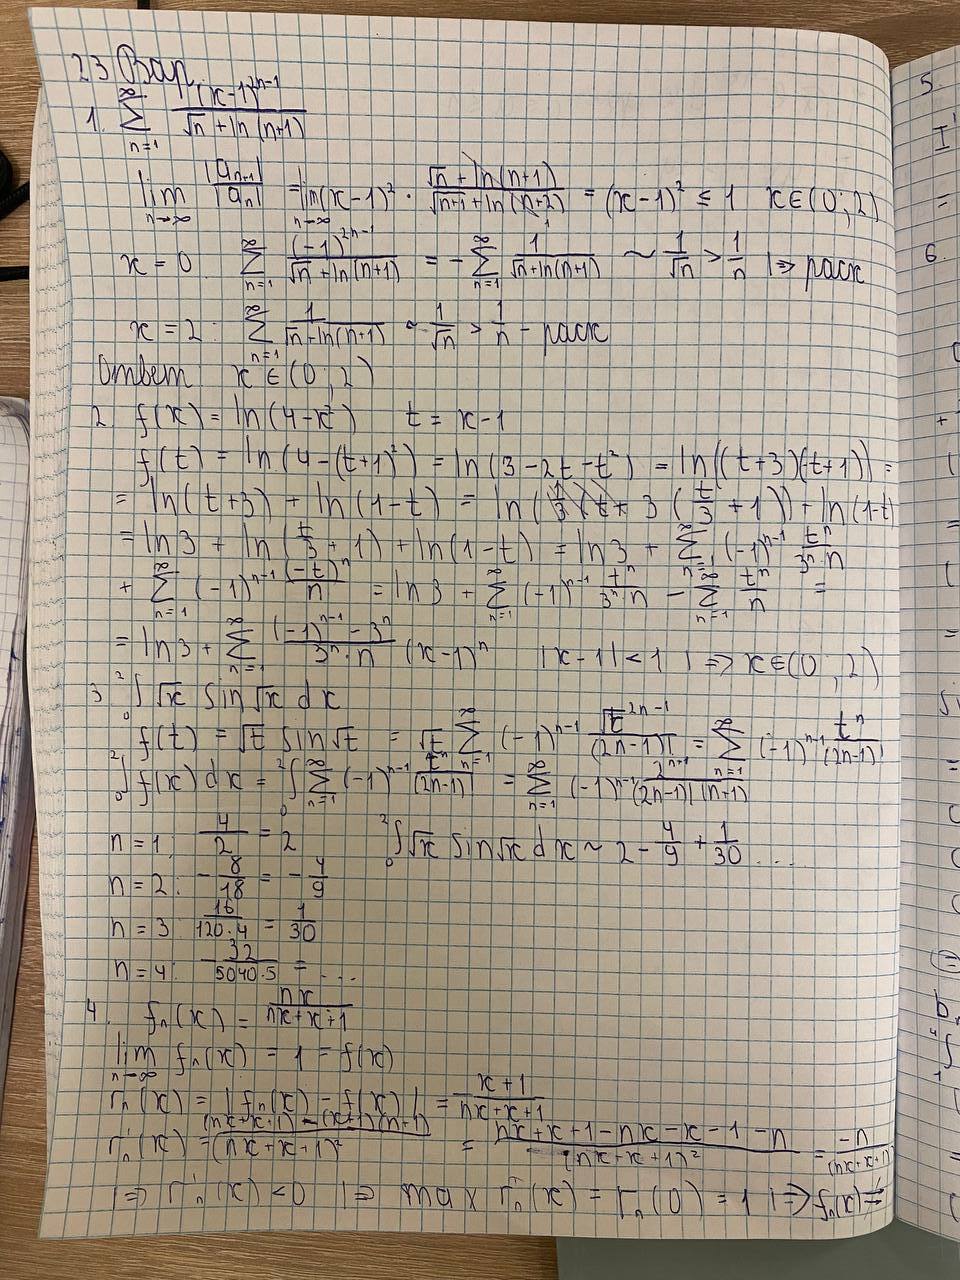 23 Вар.
1. ∑_{n=1}^{∞} (x-1)^{2n-1} / (√n + ln(n+1))
lim_{n→∞} |a_{n+1}| / |a_n| = lim_{n→∞} (x-1)² · (√n + ln(n+1)) / (√(n+1) + ln(n+2)) = (x-1)² ≤ 1 x∈(0; 2)
x = 0: ∑_{n=1}^{∞} (-1)^{2n-1} / (√n + ln(n+1)) = -∑_{n=1}^{∞} 1 / (√n + ln(n+1)) ~ 1/√n > 1/n |⇒ расх
x = 2: ∑_{n=1}^{∞} 1 / (√n + ln(n+1)) ~ 1/√n > 1/n - расх
Ответ: x ∈ (0; 2)
2. f(x) = ln(4-x²) t = x-1
f(t) = ln(4-(t+1)²) = ln(3-2t-t²) = ln((t+3)(-t+1)) =
= ln(t+3) + ln(1-t) = ln( 3 (t/3 + 1)) + ln(1-t)
= ln3 + ln(t/3 + 1) + ln(1-t) = ln3 + ∑_{n=1}^{∞} (-1)^{n-1} t^n / (3^n · n)
+ ∑_{n=1}^{∞} (-1)^{n-1} (-t)^n / n = ln3 + ∑_{n=1}^{∞} (-1)^{n-1} t^n / (3^n · n) - ∑_{n=1}^{∞} t^n / n =
= ln3 + ∑_{n=1}^{∞} ((-1)^{n-1} - 3^n) / (3^n · n) (x-1)^n |x-1| < 1 |⇒ x∈(0; 2)
3. ∫_0^2 √x sin√x dx
f(t) = √t sin√t = √t ∑_{n=1}^{∞} (-1)^{n-1} √t^{2n-1} / (2n-1)! = ∑_{n=1}^{∞} (-1)^{n-1} t^n / (2n-1)!
∫_0^2 f(x) dx = ∫_0^2 ∑_{n=1}^{∞} (-1)^{n-1} t^n / (2n-1)! = ∑_{n=1}^{∞} (-1)^{n-1} 2^{n+1} / ((2n-1)! (n+1))
n = 1: 4/2 = 2 ∫_0^2 √x sin√x dx ~ 2 - 4/9 + 1/30 ....
n = 2: -8/18 = -4/9
n = 3: 16/(120·4) = 1/30
n = 4: -32/(5040·5) = ...
4. f_n(x) = nx / (nx+x+1)
lim_{n→∞} f_n(x) = 1 = f(x)
r_n(x) = |f_n(x) - f(x)| = (x+1) / (nx+x+1)
r_n'(x) = ((nx+x+1) - (x+1)(n+1)) / (nx+x+1)² = (nx+x+1-nx-x-1-n) / (nx+x+1)² = -n / (nx+x+1)
|⇒ r_n'(x) < 0 |⇒ max r_n(x) = r_n(0) = 1 |⇒ f_n(x) ⇉
5.
I'
=
6.